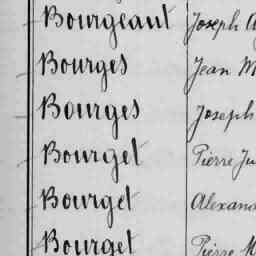 Bourgeaut Joseph
Bourges Jean
Bourges Joseph
Bourget Pierre
Bourget
Bourget Pierre